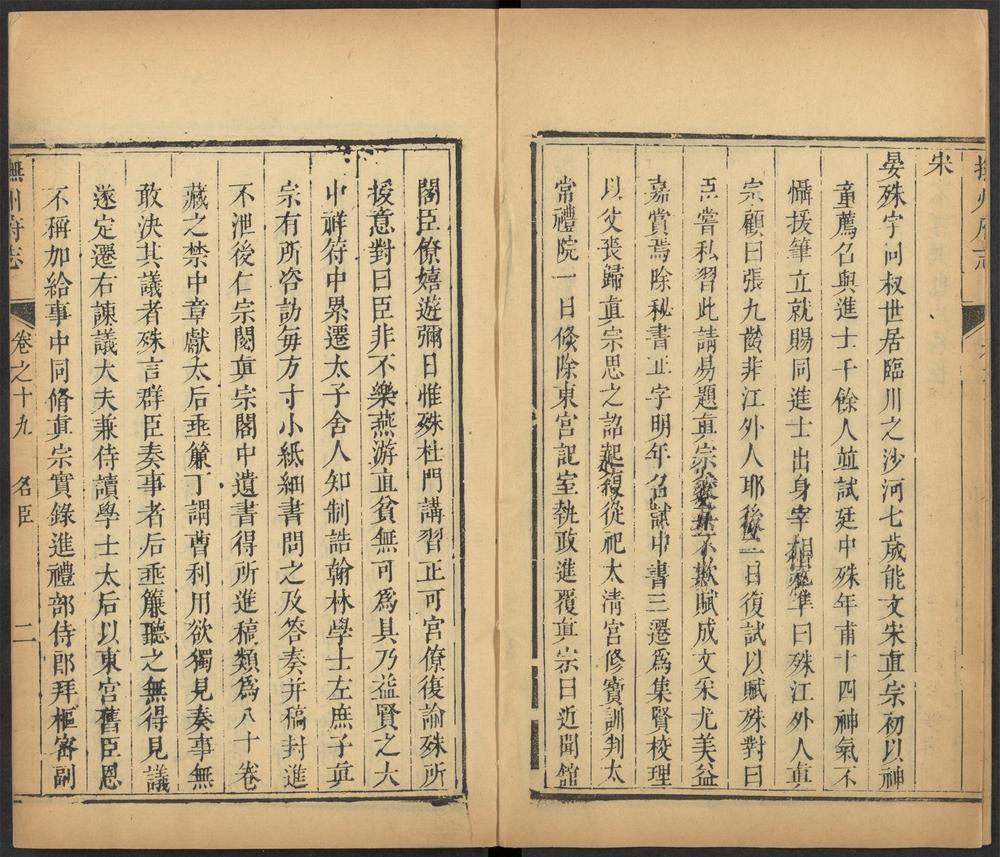 宋
晏殊字同叔世居臨川之沙河七歲能文宋真宗初以神
童薦名與進士千餘人並試廷中殊年甫十四神氣不
懾援筆立就賜同進士出身宰相寇準曰殊江外人真
宗顧曰張九齡非江外人耶後二日復試以賦殊對曰
臣嘗私習此請易題真宗不欺賦成文采尤美益
嘉賞焉除秘書正字明年名試中書三遷為集賢校理
以父喪歸真宗思之詔起復從祀太清宮修寶訓判太
常禮院一日倏除東宮記室執政進覆真宗曰近聞館
閣臣僚嬉遊彌日惟殊杜門講習正可宮僚復諭殊所
授意對曰臣非不樂燕游直貧無可為具乃益賢之大
中祥符中累遷太子舍人知制誥翰林學士左庶子真
宗有所咨訪每方寸小紙細書問之及答奏并稿封進
不泄後仁宗閱真宗閣中遺書得所進稿類為八十卷
藏之禁中章獻太后垂簾丁謂曹利用欲獨見奏事無
敢決其議者殊言群臣奏事者后垂簾聽之無得見議
遂定遷右諫議大夫兼侍讀學士太后以東宮舊臣恩
不稱加給事中同脩真宗實錄進禮部侍郎拜樞密副
撫州府志
卷之十九
名臣
二